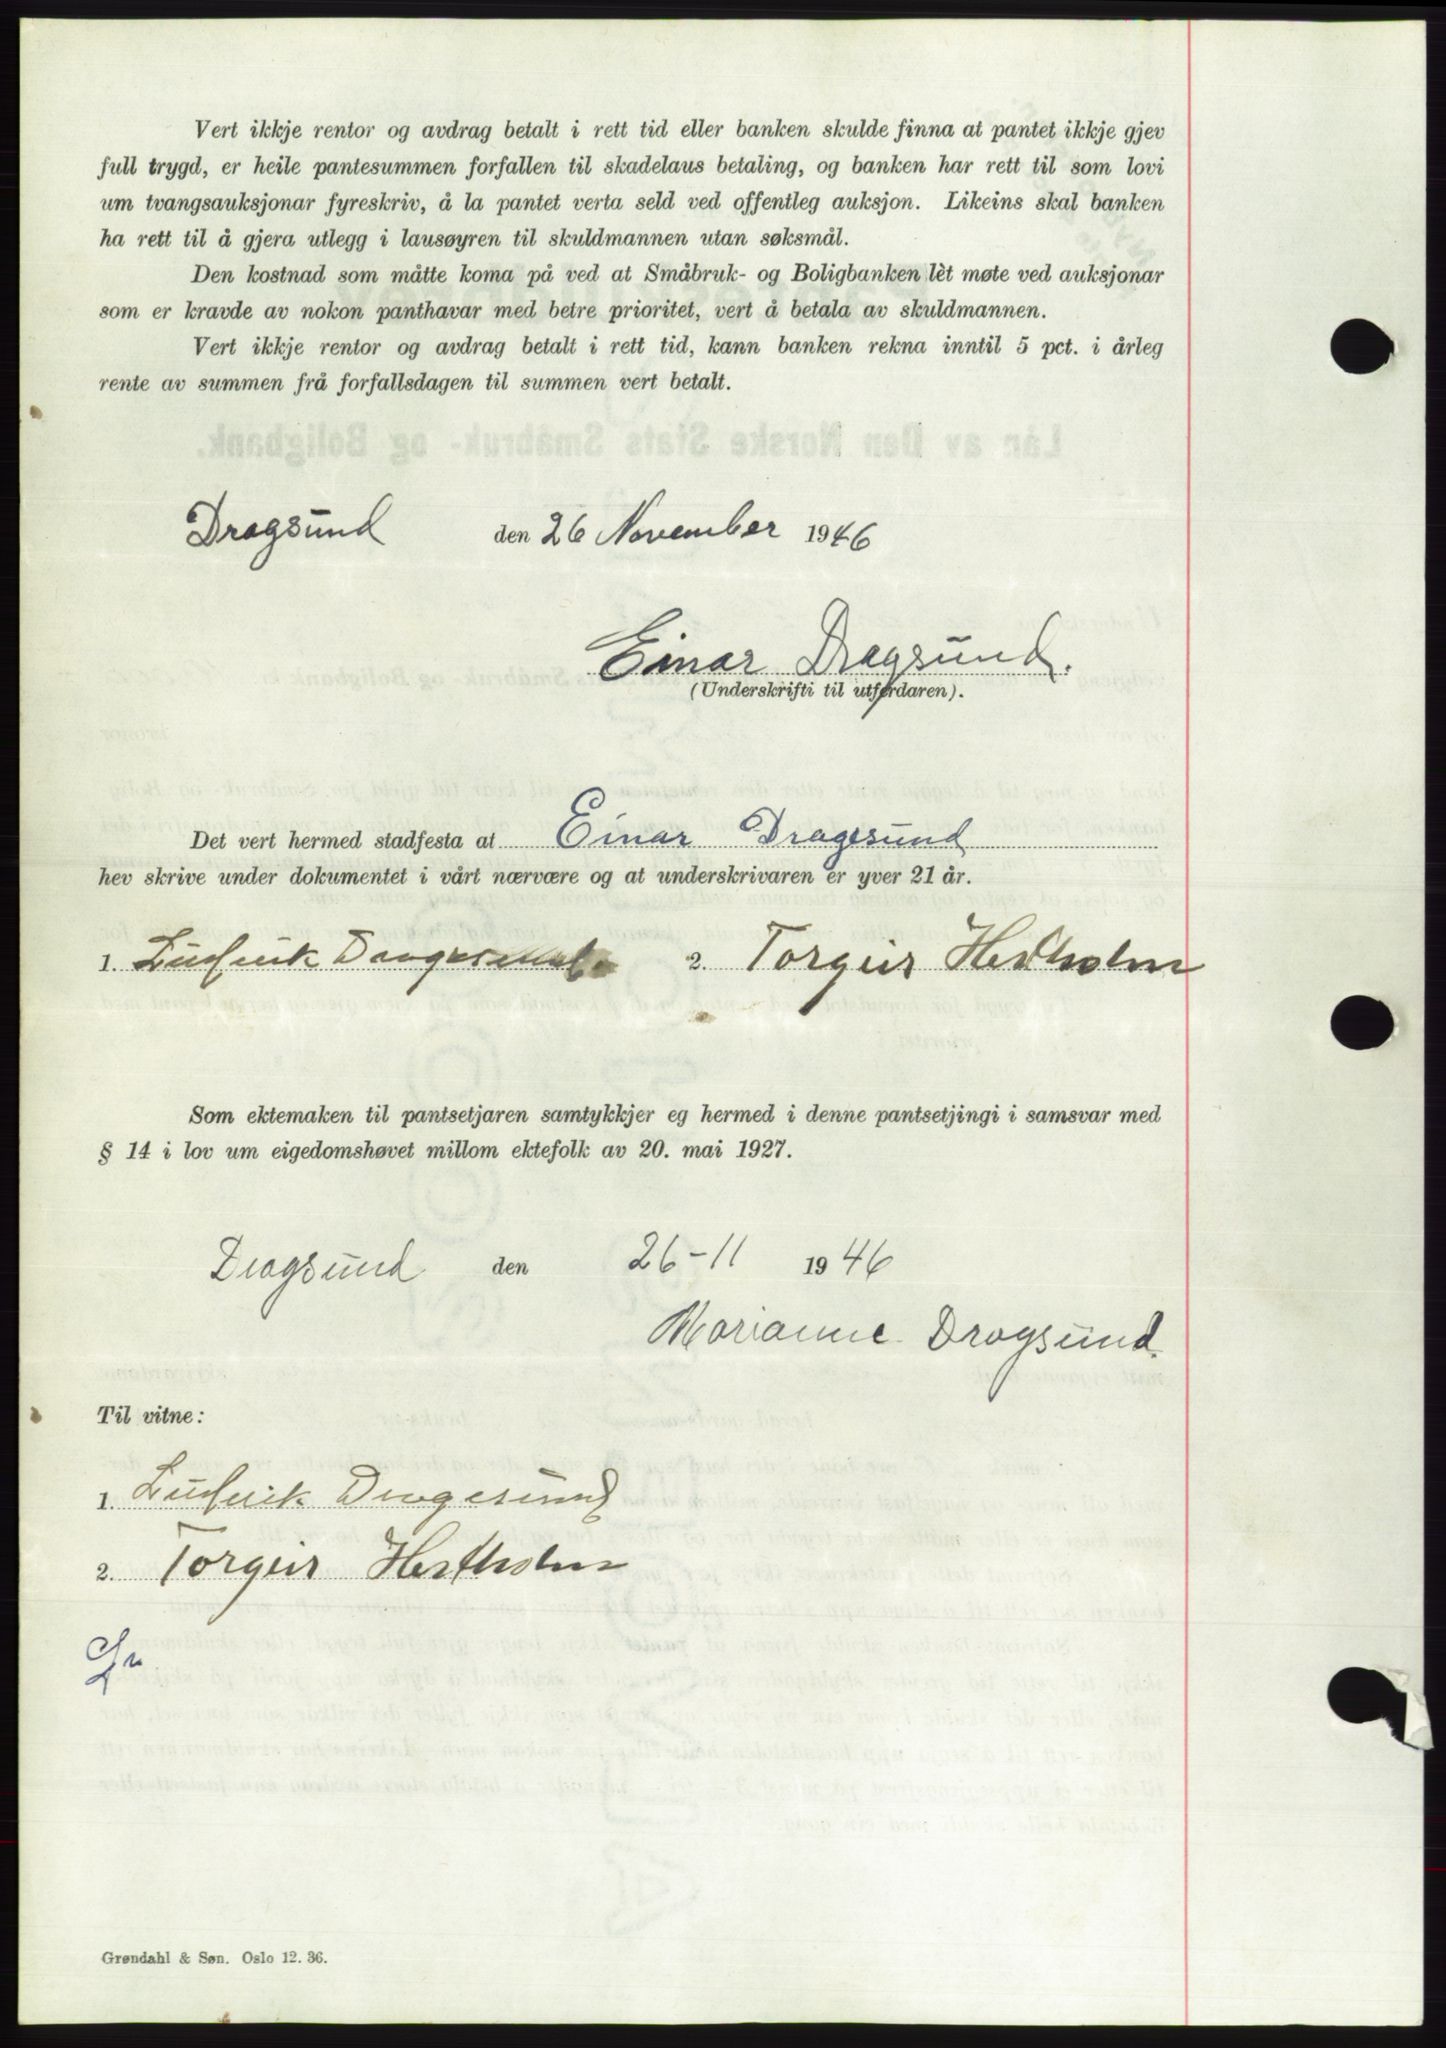 Vert ikkje rentor og avdrag betalt i rett tid eller banken skulde finna at pantet ikkje gjev
full trygd, er heile pantesummen forfallen til skadelaus betaling, og banken har rett til som lovi
um tvangsauksjonar fyreskriv, å la pantet verta seld ved offentleg auksjon. Likeins skal banken
ha rett til å gjera utlegg i lausøyren til skuldmannen utan søksmål.
Den kostnad som måtte koma på ved at Småbruk- og Boligbanken lèt møte ved auksjonar
som er kravde av nokon panthavar med betre prioritet, vert å betala av skuldmannen.
Vert ikkje rentor og avdrag betalt i rett tid, kann banken rekna inntil 5 pct. i årleg
rente av summen frå forfallsdagen til summen vert betalt.
Dragsund den 26 November 1946
Einar Dragsund.
(Underskrifti til utferdaren).
Det vert hermed stadfesta at Einar Dragesund
hev skrive under dokumentet i vårt nærvære og at underskrivaren er yver 21 år.
1. Ludvik Dragesund 2. Torgeir Hestholm
Som ektemaken til pantsetjaren samtykkjer eg hermed i denne pantsetjingi i samsvar med
§ 14 i lov um eigedomshøvet millom ektefolk av 20. mai 1927.
Dragsund den 26-11 1946
Marianne Dragsund.
Til vitne:
1. Ludvik Dragesund
2. Torgeir Hestholm
Grøndahl & Søn. Oslo 12. 36.